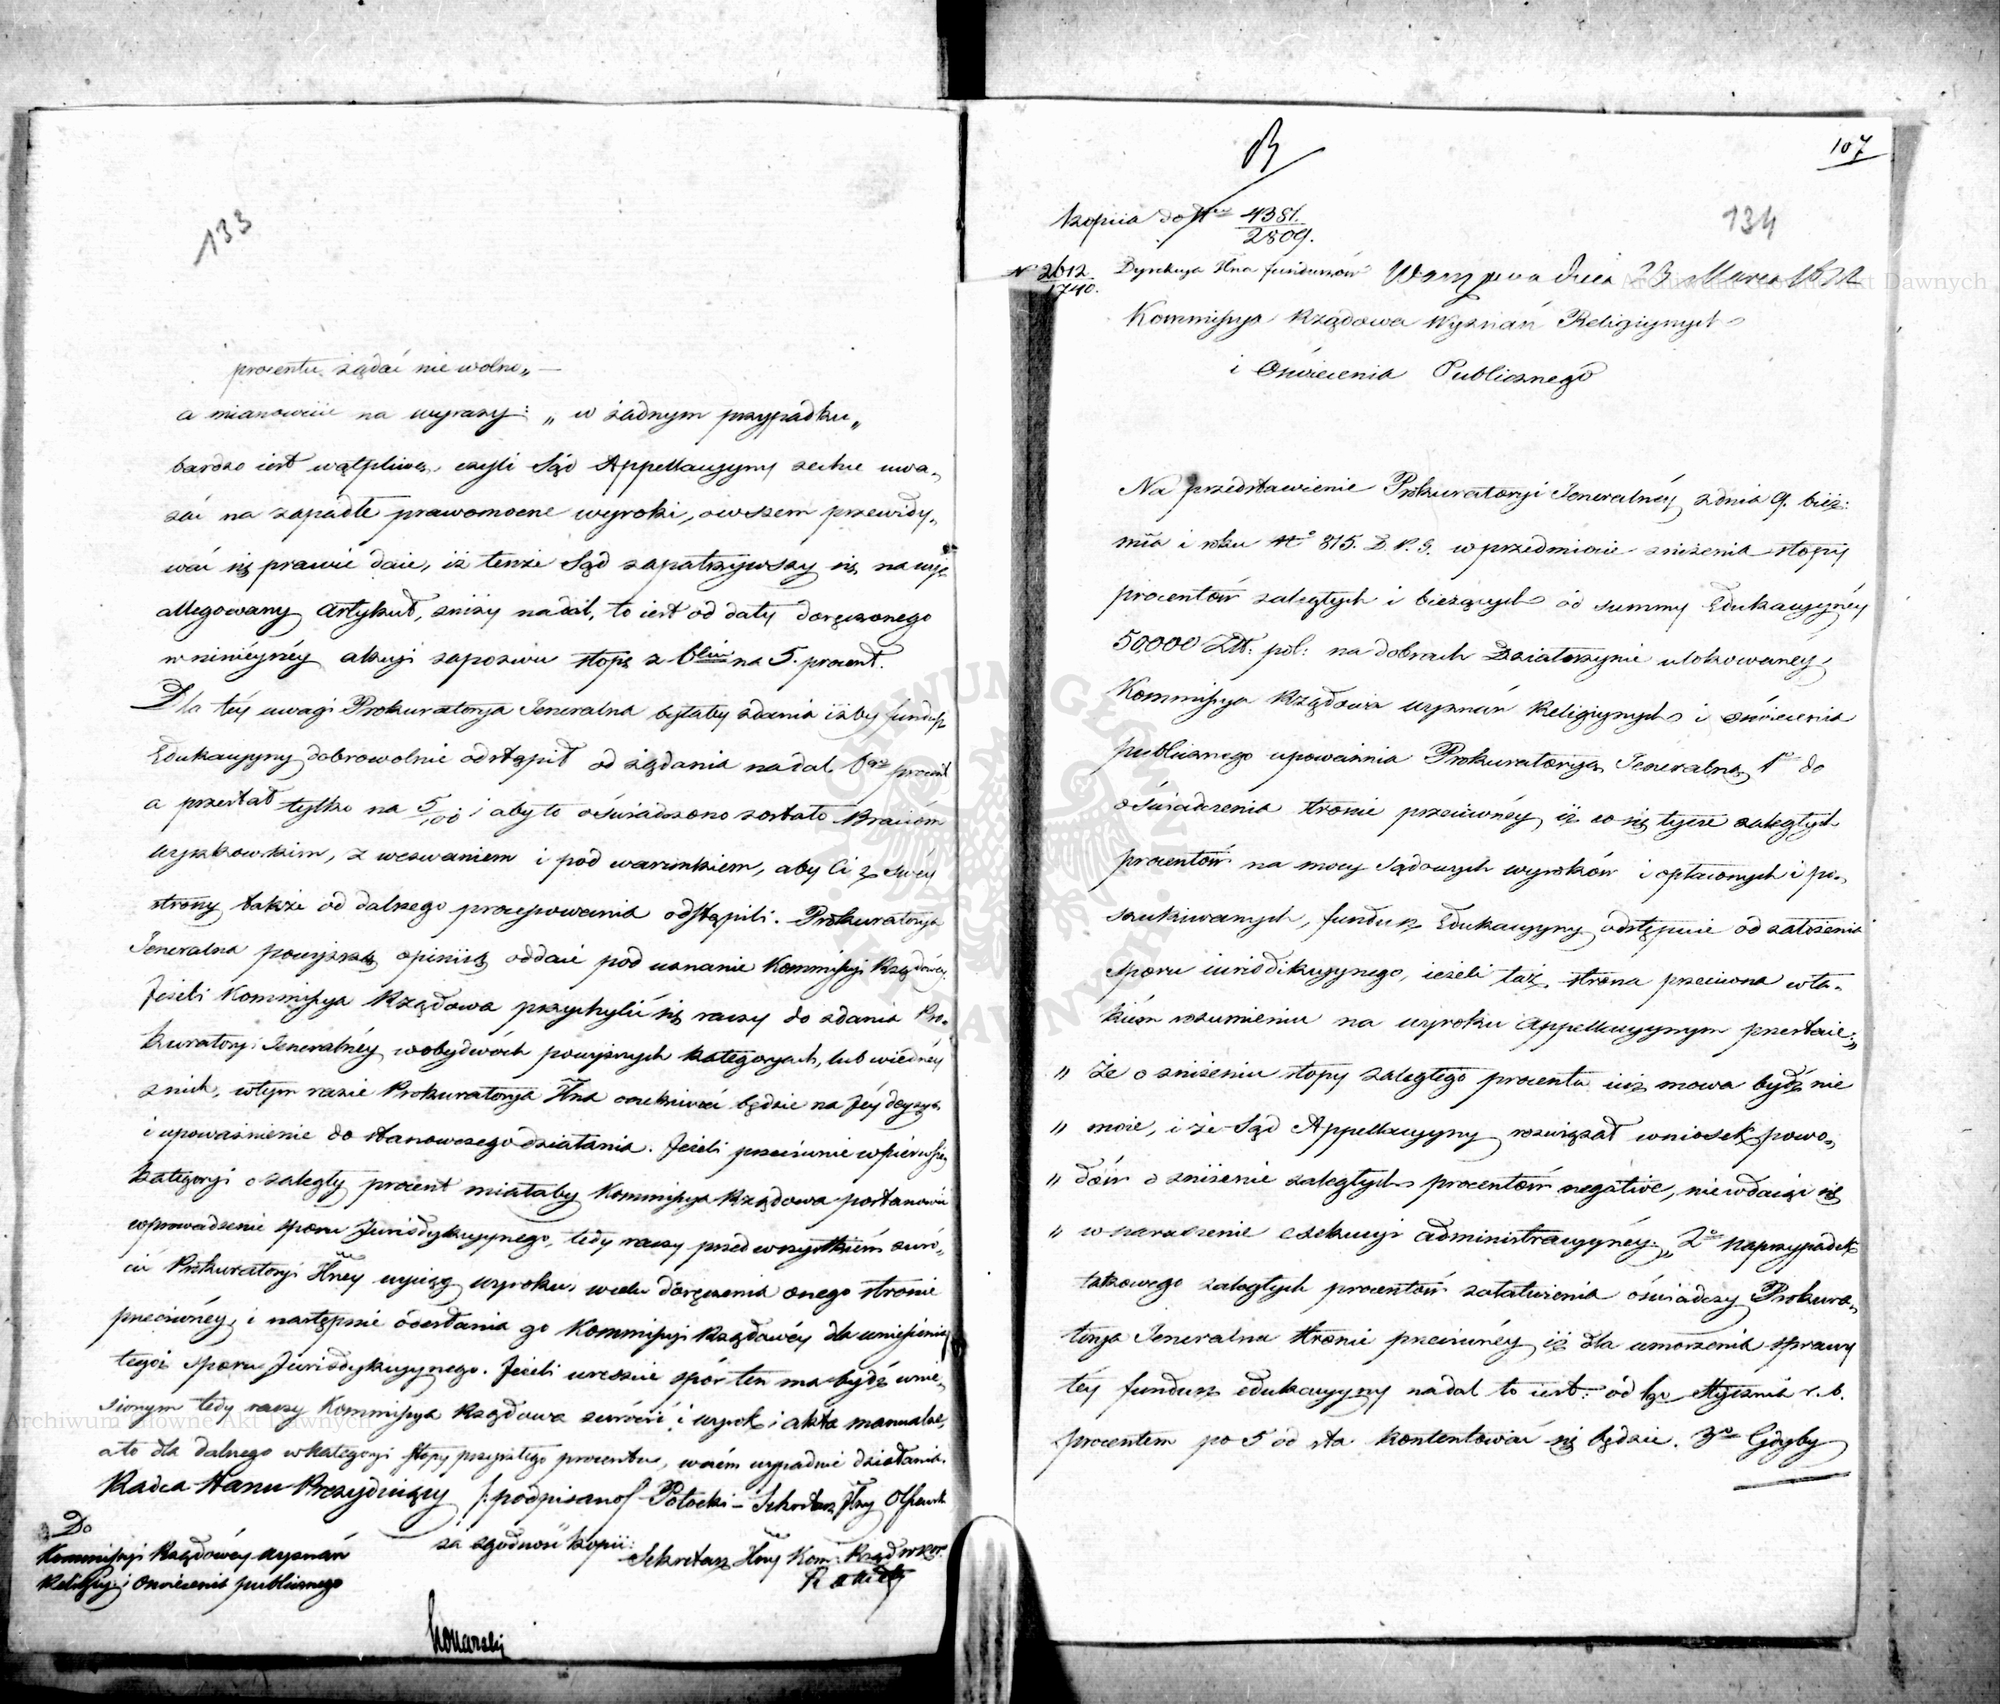 133
procentu żądać nie wolno„ —
a mianowicie na wyrazy: „ w żadnym przypadku„
bardzo iest wątpliwą, czyli Sąd Appellacyyny zechce uwa„
żać na zapadłe prawomocne wyroki, owszem przewidy„
wać się prawie daie, iż tenże Sąd zapatrzywszy się na wyż
allegowany Artykuł, zniży nadal, to iest od daty doręczonego
w ninieyszéy akcyi zapozwu stopę z 6ciu na 5. procent.
Dla téy uwagi Prokuratorya Jeneralna byłaby zdania iżby fundusz
Edukacyyny dobrowolnie odstąpił od żądania nadal 6go procent
a przestał tylko na 5/100 i aby to oświadczono zostało Braciom
Wyszkowskim, z wezwaniem i pod warunkiem, aby Ci z swéy
strony także od dalszego processowania odstąpili. Prokuratorya
Jeneralna powyższą opiniią oddaie pod uznanie Kommissyi Rządowéy.
Jeżeli Kommissya Rządowa przychylić się raczy do zdania Pro„
kuratoryi Jeneralnéy wobydwóch powyższych kategoryach, lub wiednéy
z nich, wtym razie Prokuratorya Jlna oczekiwać będzie na Jéy decyzyą
i upoważnienie do stanowczego działania. Jeżeli przeciwnie wpierwszey
kategoryi o zaległy procent miałaby Kommissya Rządowa postanowić
wprowadzenie sporu Jurisdykcyynego, tedy raczy przed wszystkiém zwró„
cić Prokuratoryi Jlney wyciąg wyroku, wcelu doręczenia onego stronie
przeciwnéy, i następnie odesłania go Kommissyi Rządowéy dla wniesienia
tegoż sporu Jurisdykcyynego. Jeżeli wreszcie spór ten ma bydź wnie„
sionym tedy raczy Kommissya Rządowa zwrócić i wyrok i akta manualne,
a to dla dalszego wkategoryi stopy przyszłego procentu, wczém wypadnie działania.
Radca Stanu Prezyduiący /: podpisano/ Potocki – Sekretarz Jlny
za zgodność kopii:
Do
Kommissyi Rządowéy Wyznań
Religiy: i Oświecenia publicznego
Sekretarz Jlny Kom: Rząd:
Konarski
107
134
B
Kopiia do Nru 4381/2809.
N 2612/1740.
Dyrekcya Jlna funduszów Warszawa dnia 23 Marca 1822
Kommissya Rządowa Wyznań Religiynych
i Oświecenia Publicznego
Na przedstawienie Prokuratoryi Jeneralnéy z dnia 9. bież:
mca i roku No 815. D. P. G. w przedmiocie zniżenia stopy
procentów zaległych i bieżących od summy Edukacyynéy
50,000 Złt: pol: na dobrach Działoszynie ulokowanéy,
Kommissya Rządowa wyznań Religiynych i oświecenia
publicznego upoważnia Prokuratoryą Jeneralną 1o do
oświadczenia stronie przeciwnéy, iż co się tycze zaległych
procentów na mocy sądowych wyroków i opłaconych i po„
szukiwanych, fundusz Edukacyyny odstępuie od założenia
sporu iurisdikcyynego, ieżeli taż strona przeciwna wta„
kiém rozumieniu na wyroku Appellacyynym przestaie:„
„ że o zniżeniu stopy zaległego procentu iuż mowa bydź nie
„ może, i że Sąd Appellacyyny rozwiązał wniosek powo„
„ dów o zniżenie zaległych procentów negative, niewdaiąc się
„ w narażenie exekucyi administracyynéy.„ 2o Naprzypadek
takowego zaległych procentów załatwienia oświadczy Prokura„
torya Jeneralna stronie przeciwnéy iż dla umorzenia sprawy
téy fundusz edukacyyny nadal to iest: od 1go Stycznia r. b.
procentem po 5 od sta kontentować się będzie. 3o Gdyby
Archiwum Główne Akt Dawnych